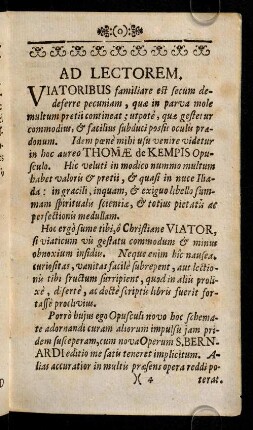 (o)
AD LECTOREM.
VIATORIBUS familiare est secum de-
deferre pecuniam, quæ in parva mole
multum pretii contineat; utpote, quæ gestetur
commodiu, & facilius subduci possit oculis præ-
donum. Idem pœnè mihi usu venire videtur
in hoc aureo THOMÆ de KEMPIS Opu-
sculo. Hic veluti in modico nummo multum
habet valoris & pretii, & quasi in nuce Ilia-
da: in gracili, inquam, & exiguo libello sum-
mam spiritualis scientiæ, & totius pietatis ac
perfectionis medullam.
Hoc ergò sume tibi, ô Christiane VIATOR,
si viaticum vis gestatu commodum & minus
obnoxium insidiis. Neque enim hîc nausea,
curiositas, vanitas facilè subrepent, aut lectio-
nis tibi fructum surripient, quod in aliis proli-
xè, disertè, ac doctè scriptis libris fuerit for-
tassè proclivius.
Porrò hujus ego Opusculi novo hoc schema-
te adornandi curam aliorum impulsu jam pri-
dem susceperam, cum nova Operum S. BERN-
ARDI editio me satis teneret implicitum. A-
lias accuratior in multis præsens opera reddi po-
)( 4 terat.